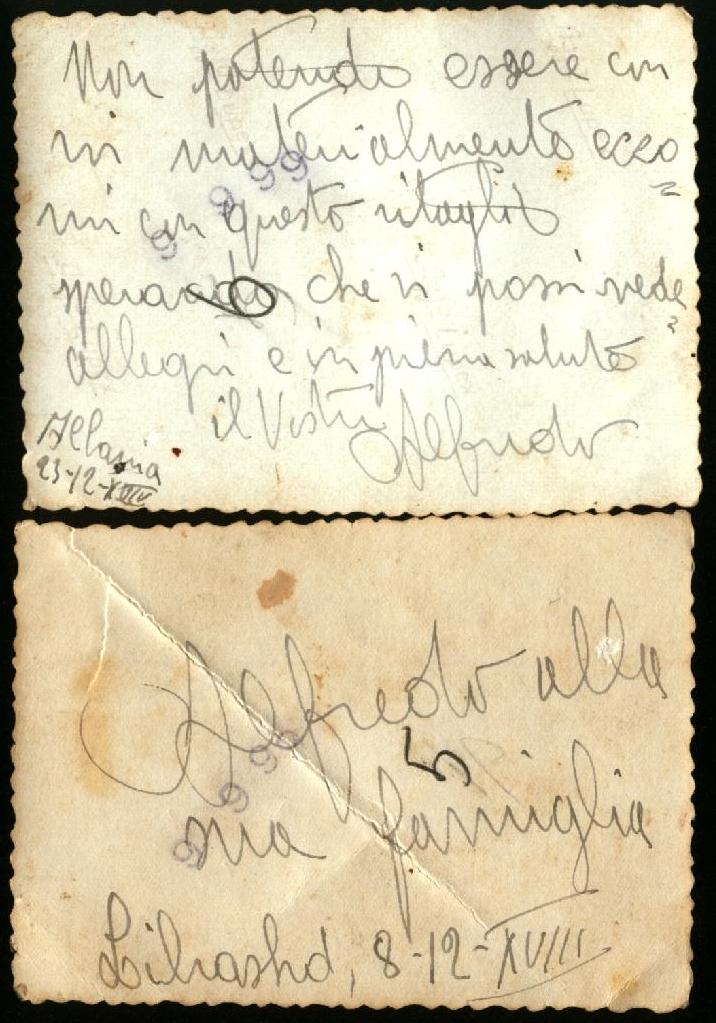 Non potendo essere con
vi materialmente ecco
mi con questo ritaglio
sperando che vi possi vede
allegri e in piena salute
il Vostro Alfredo
23-12-XVIII
6
9 9 99
Alfredo alla
sua famiglia
5
9 9 99
8-12-XVIII